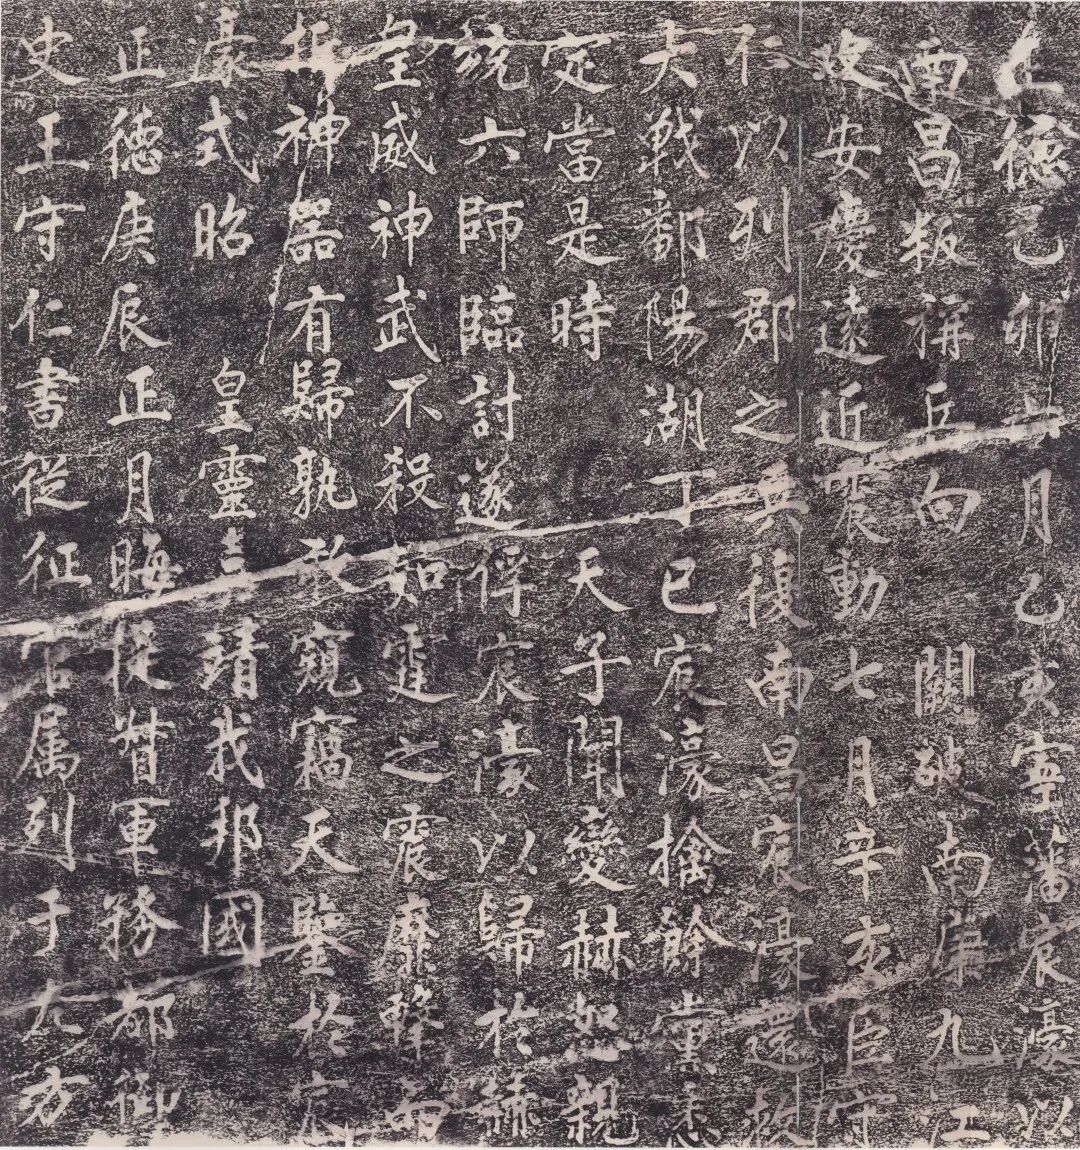 正德己卯六月乙亥寧藩宸濠以
南昌叛稱兵向闕破南康九江
攻安慶遠近震動七月辛亥臣守
仁以列郡之兵復南昌宸濠還救
大戰鄱陽湖丁巳宸濠擒餘黨悉
定當是時天子聞變赫怒親
統六師臨討遂俘宸濠以歸於赫
皇威神武不殺如霆之震靡擊而
折神器有歸孰敢窺竊天鑒於宸
濠式昭皇靈嘉靖我邦國
正德庚辰正月晦提督軍務都御
史王守仁書從征官属列于左方